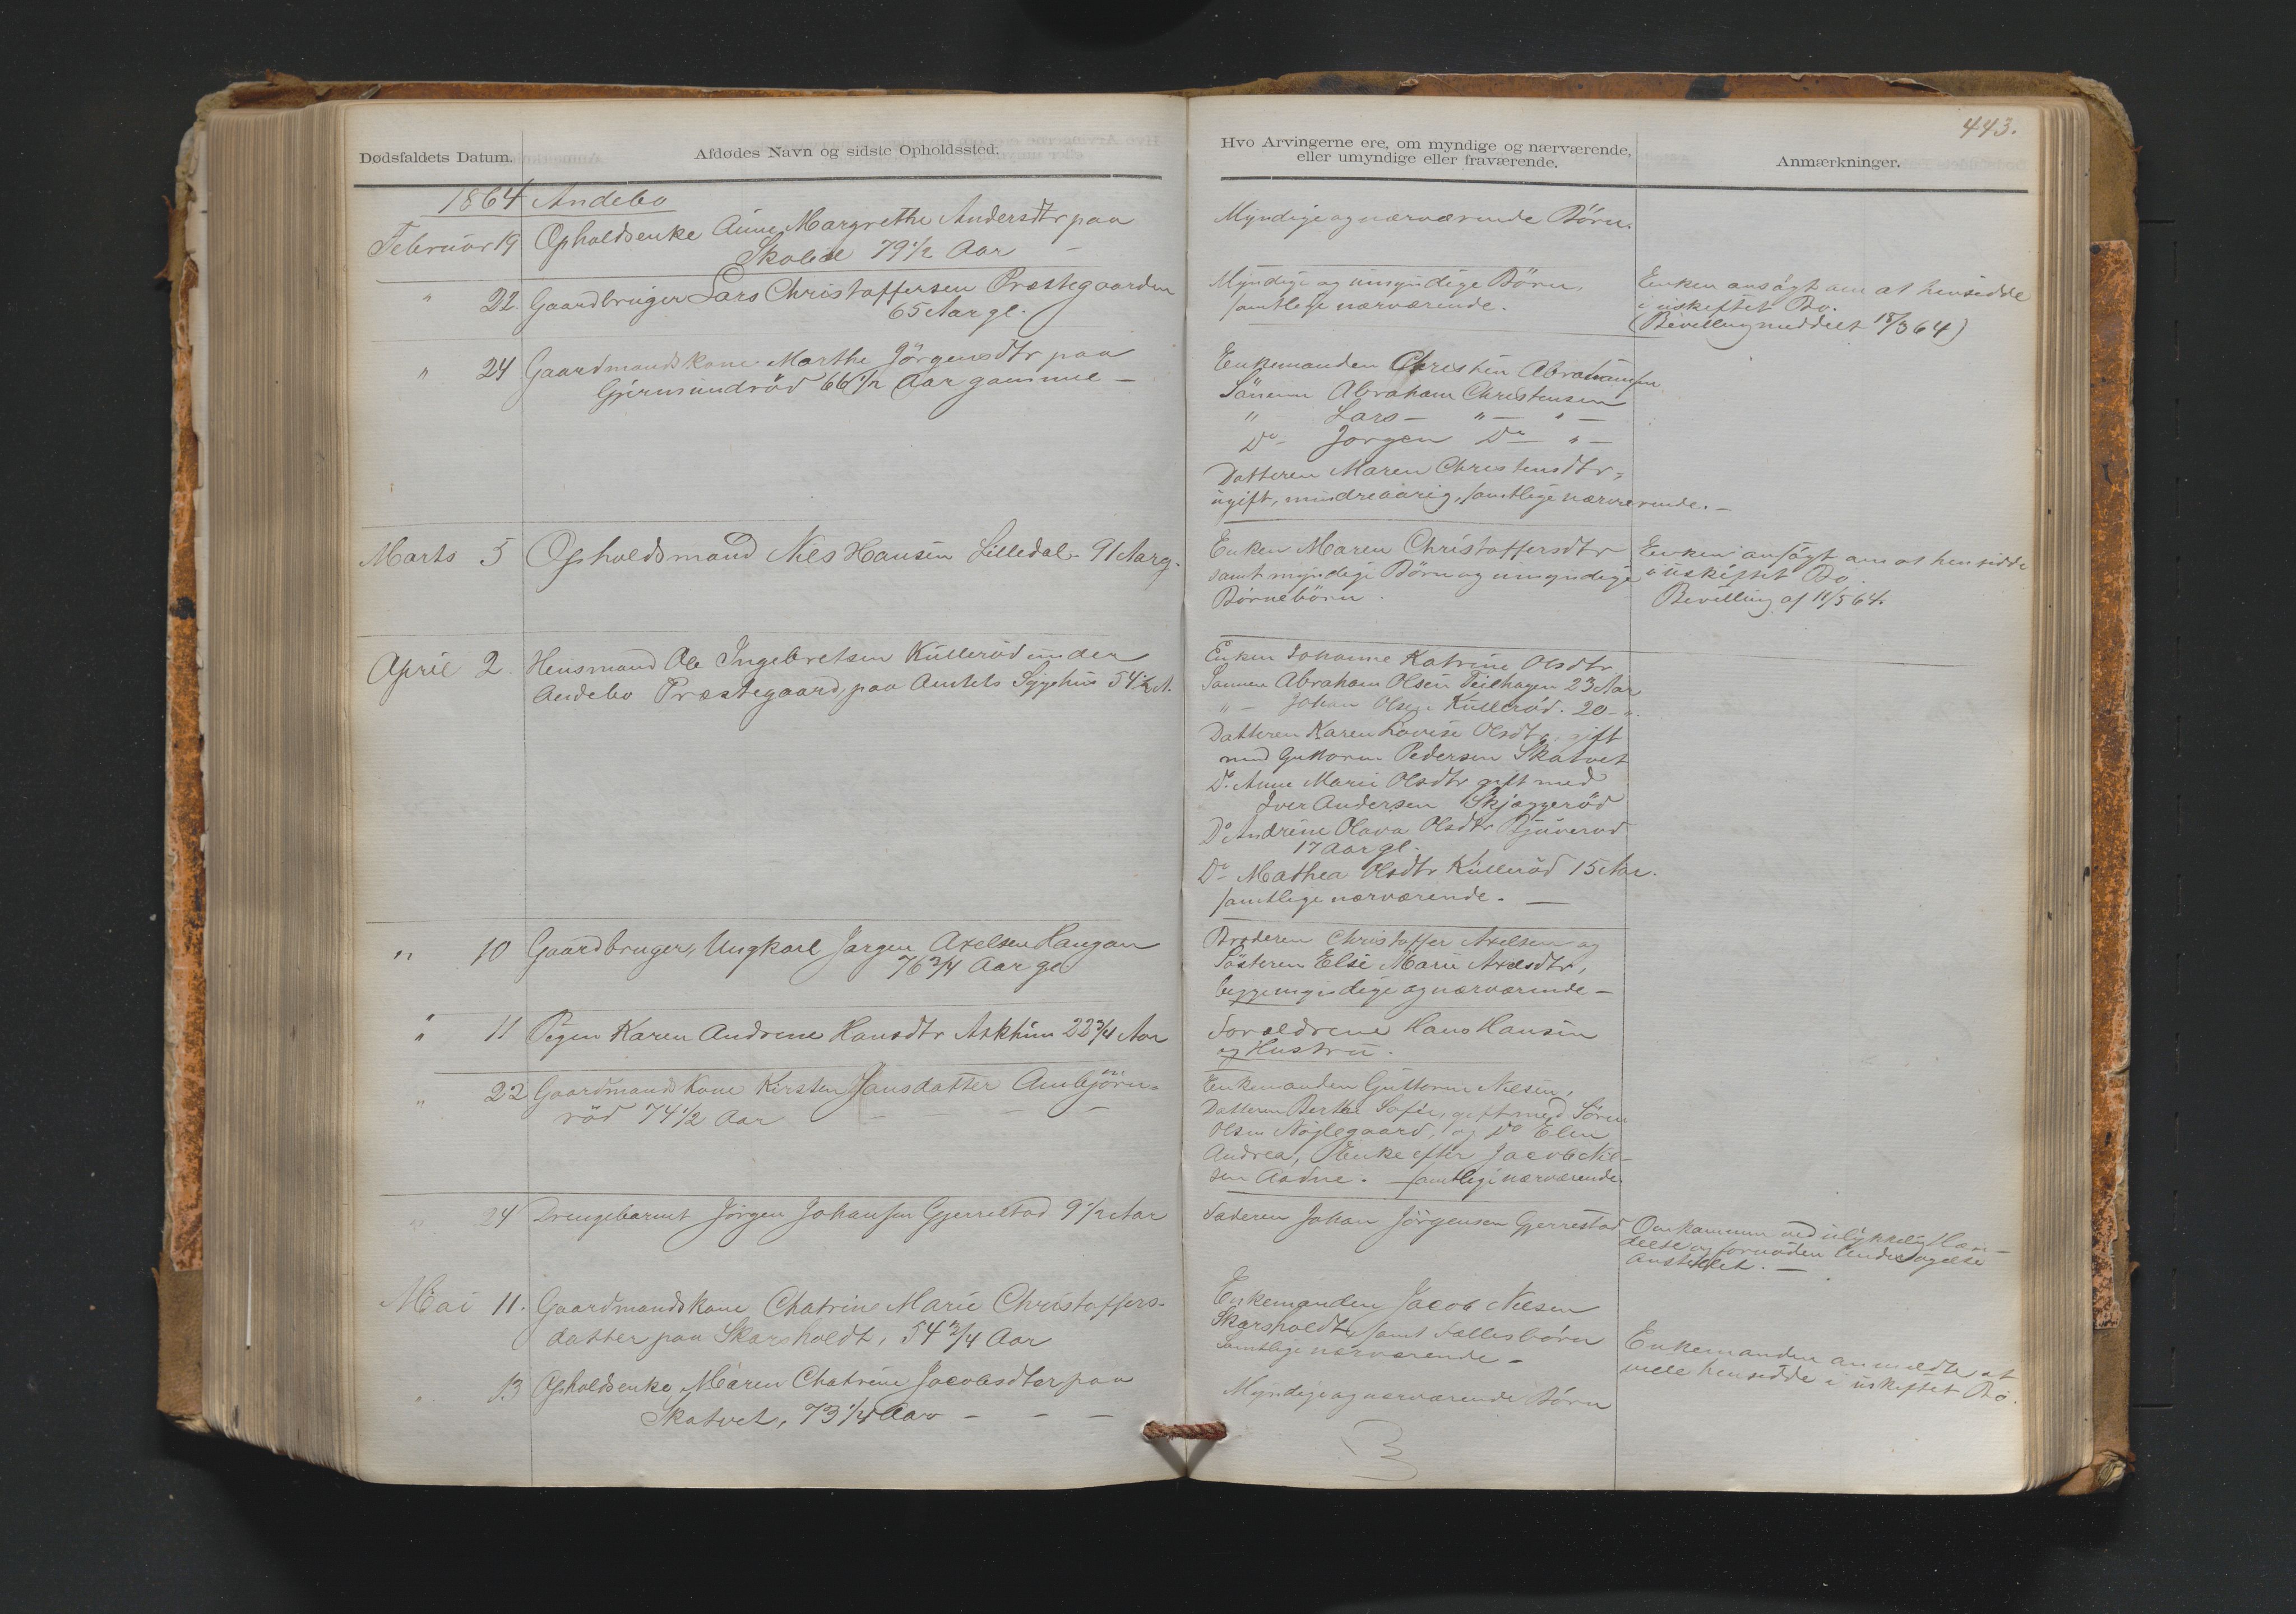 443.
Dødsfaldets Datum.
Afdødes Navn og sidste Opholdssted.
Hvo Arvingerne ere, om myndige og nærværende,
eller umyndige eller fraværende.
Anmærkninger.
1864 Andebo
Februar 19 Opholdsenke Anne Margrethe Andersdtr paa
79 1/2 Aar –
Myndige og nærværende Børn.
" 22. Gaardbruger Lars Christoffersen Præstegaarden
65 Aar gl.
Myndige og umyndige Børn,
samtlige nærværende.
Enken ansøgt om at hensidde
i uskiftet Bo.
(Bevilling meddelt 18/3 64)
" 24 Gaardmandskone Marthe Jörgensdtr paa
Gjermundröd 66 1/2 Aar gammel –
Enkemanden Christen Abrahamsen
Sönnen Abraham Christensen
" Lars – " – " –
Do – Jorgen Do – " –
Datteren Maren Christensdtr,
ugift, mindreaarig, samtlige nærværende. –
Marts 5 Opholdsmand Niels Hansen Lilledal 91 Aar g.
Enken Maren Christoffersdtr
samt myndige Børn og umyndige
Børnebörn.
Enken ansögt om at hensidde
i uskiftet Bo.
Bevilling af 11/5 64.
April 2. Huusmand Ole Ingebretsen Kullerød under
Andebo Præstegaard, paa Amtets Sygehus 54 1/2 A.
Enken Johanne Katrine Olsdtr
Sønnen Abraham Olsen Teilhagen 23 Aar
" – Johan Olsen Kullerød. 20 – ".
Datteren Karen Lovise Olsdtr, gift
med Guttorm Pedersen Skatvet
Do. Anne Marie Olsdtr gift med
Iver Andersen Skjæggeröd
Do Andrine Olava Olsdtr
17 Aar gl.
Do – Mathea Olsdtr Kulleröd 15 Aar.
samtlige nærværende. –
" 10 Gaardbruger, Ungkarl Jørgen Axelsen Haugan
76 3/4 Aar gl
Broderen Christoffer Axelsen og
Søsteren Else Marie Axelsdtr,
begge myndige og nærværende –
" 11 Pigen Karen Andrine Hansdtr Askhim 22 3/4 Aar
Forældrene Hans Hansen
og Hustru.
" 22 Gaardmandskone Kirsten Hansdatter Ambjörn-
röd 74 1/2 Aar – – – –
Enkemanden Guttorm Nilsen,
Datteren Berthe Sofie, gift med Sören
Olsen Nøjlegaard, og Do Elen
Andrea, Enke efter Jacob Nil-
sen Aadne. – samtlige nærværende
" 24 Drengebarnet Jörgen Johansen Gjerrestad 9 1/2 Aar
Faderen Johan Jörgensen Gjerrestad
Omkommen ved ulykkelig Hæn-
delse og fornøden Undersøgelse
anstillet. –
Mai 11. Gaardmandskone Chatrine Marie Christoffers-
datter paa Skarsholdt, 54 3/4 Aar
Enkemanden Jacob Nilsen
Skarsholdt, samt Fællesbørn
Samtlige nærværende –
Enkemanden anmeldte at
ville hensidde i uskiftet Bo.
" 13 Opholdsenke Maren Chatrine Jacobsdter paa
Skatvet, 73 1/4 Aar – – –
Myndige og nærværende Børn